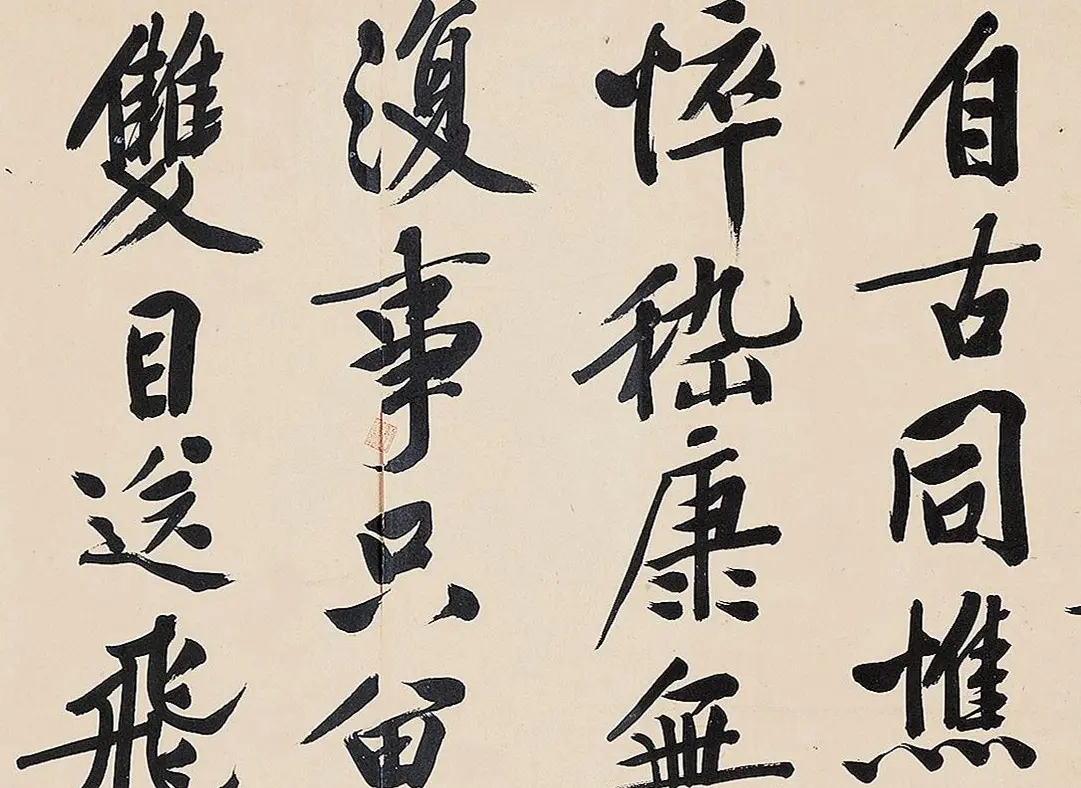 自古同憔
悴嵇康無
復事只留
雙目送飛